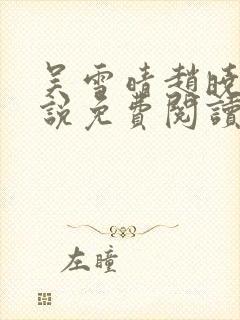 吴雪晴趙曉
說免費閱讀
左瞳